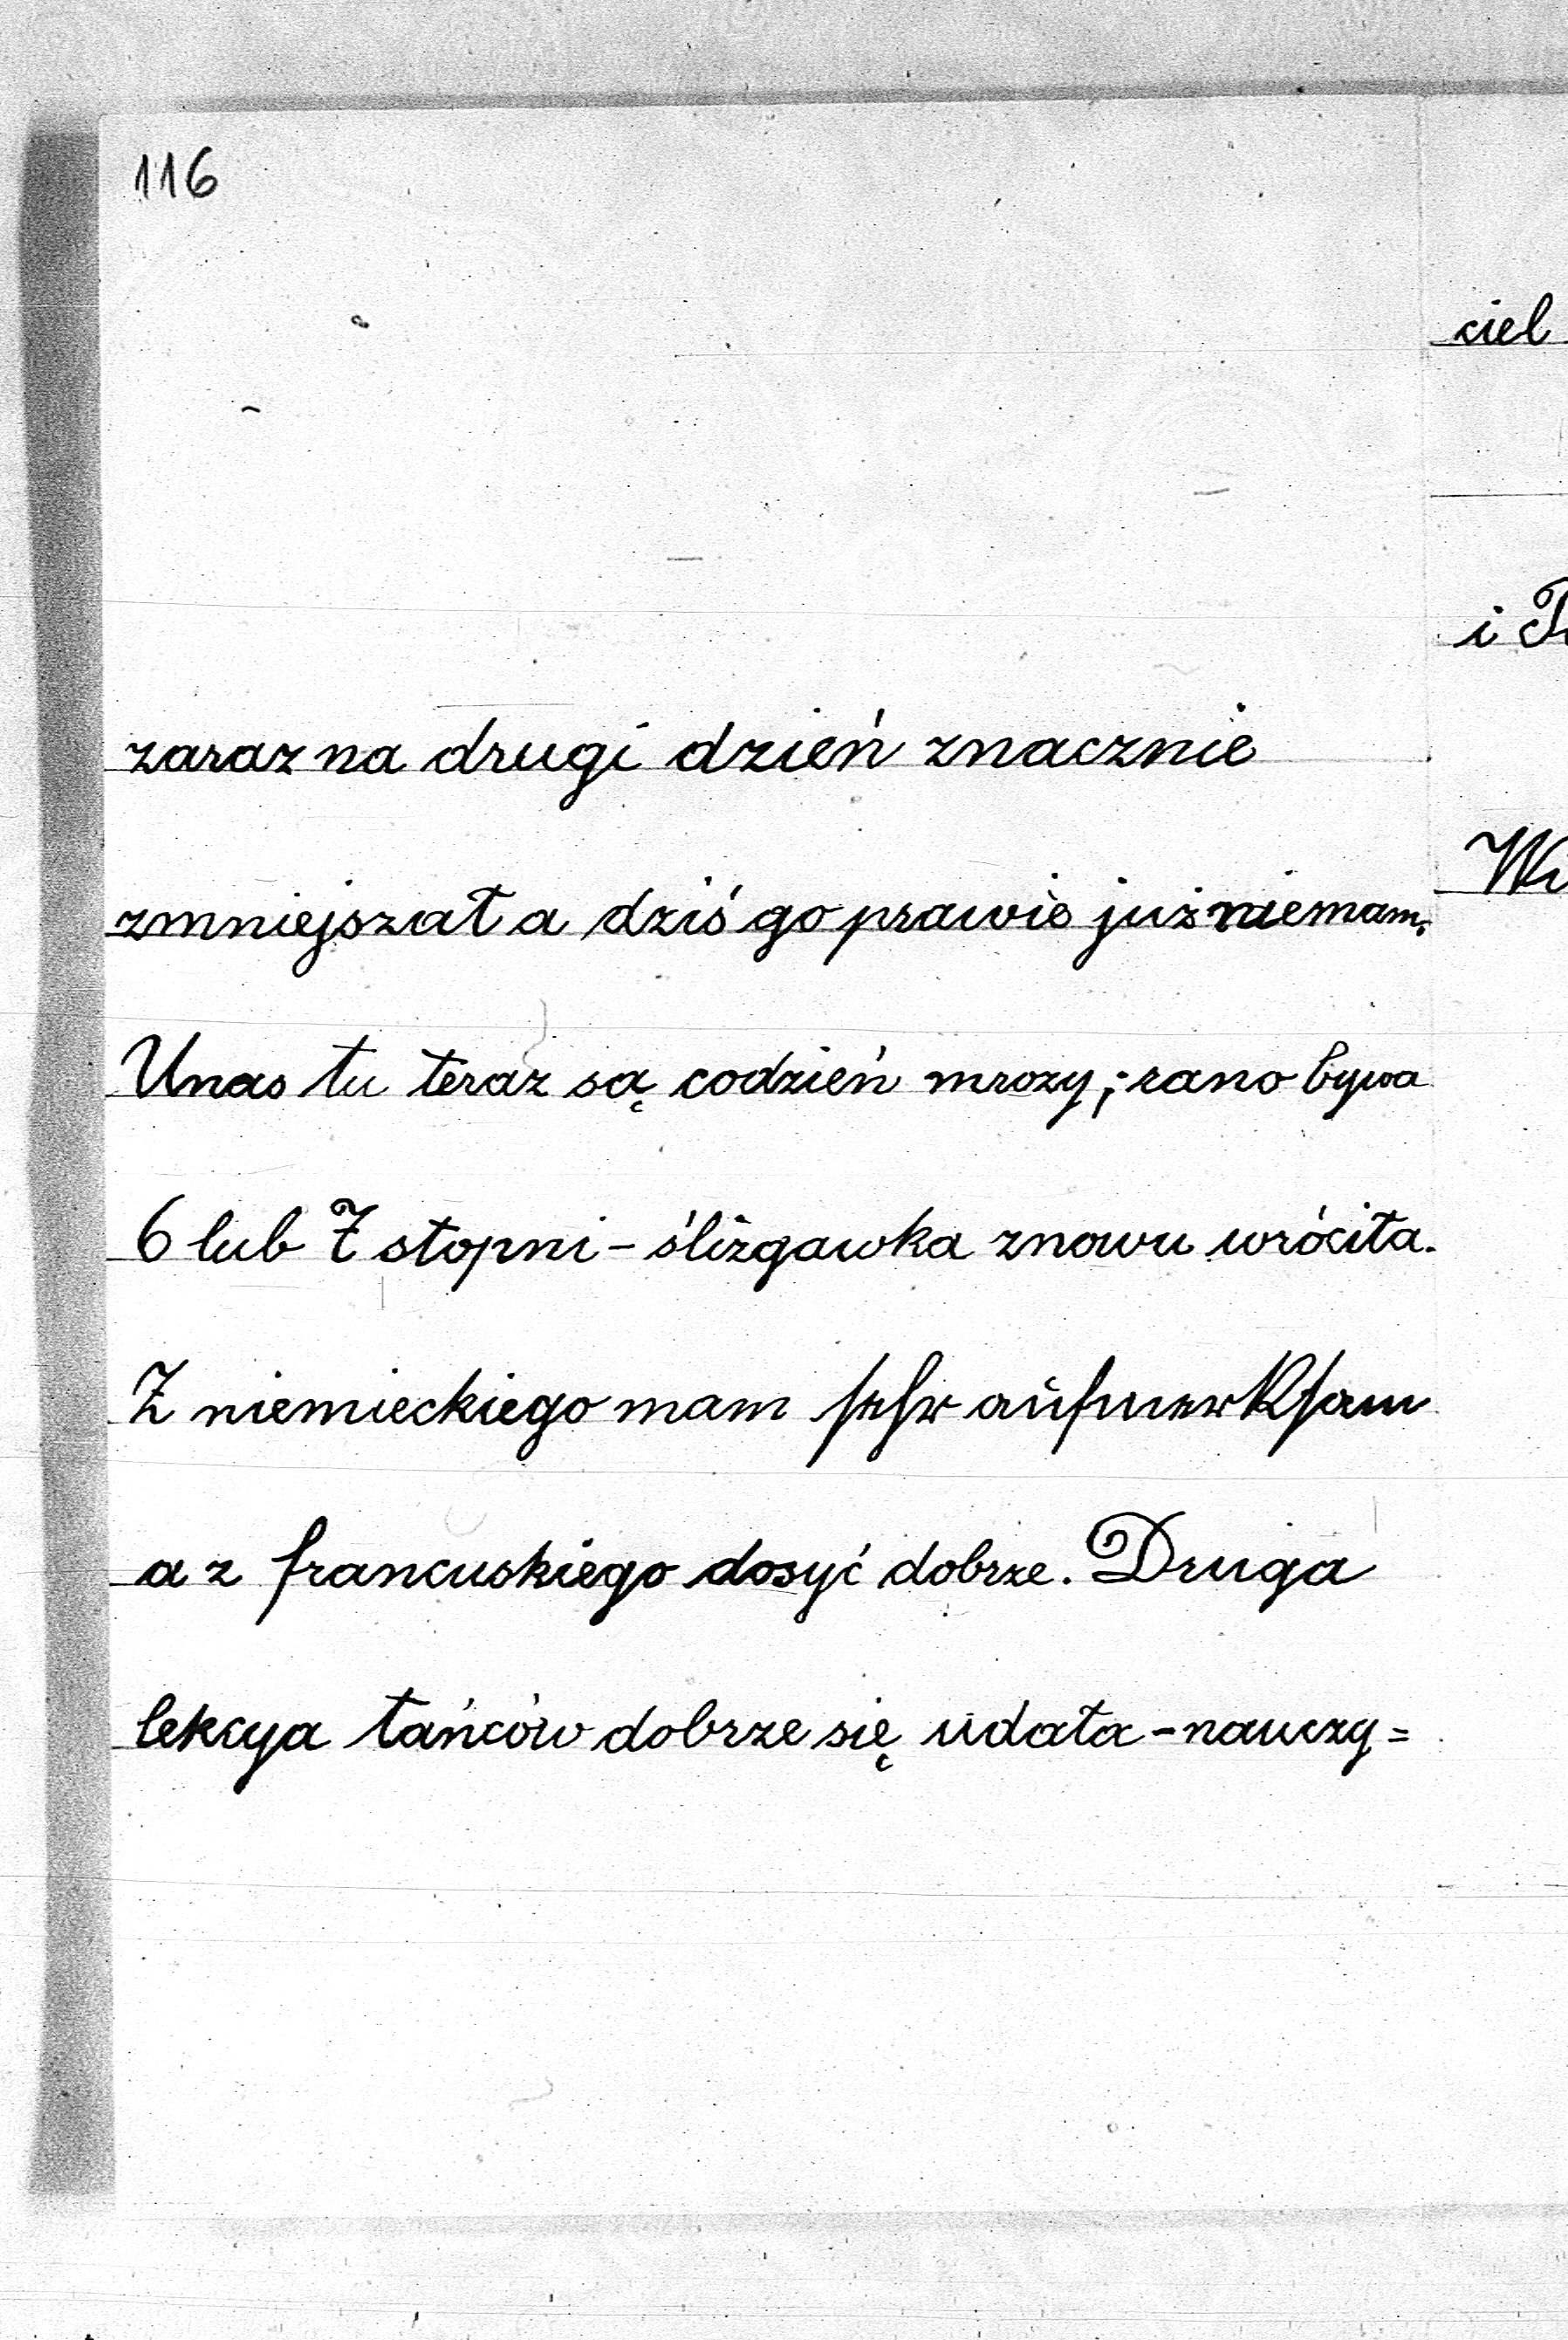 116
zaraz na drugi dzień znacznie
zmniejszał a dziś go prawie już niemam.
U nas tu teraz są codzień mrozy; rano bywa
6 lub 7 stopni - ślizgawka znowu wróciła.
Z niemieckiego mam sehr aufmerksam
a z francuskiego dosyć dobrze. Druga
lekcya tańców dobrze się udała - nauczy=
ciel
i